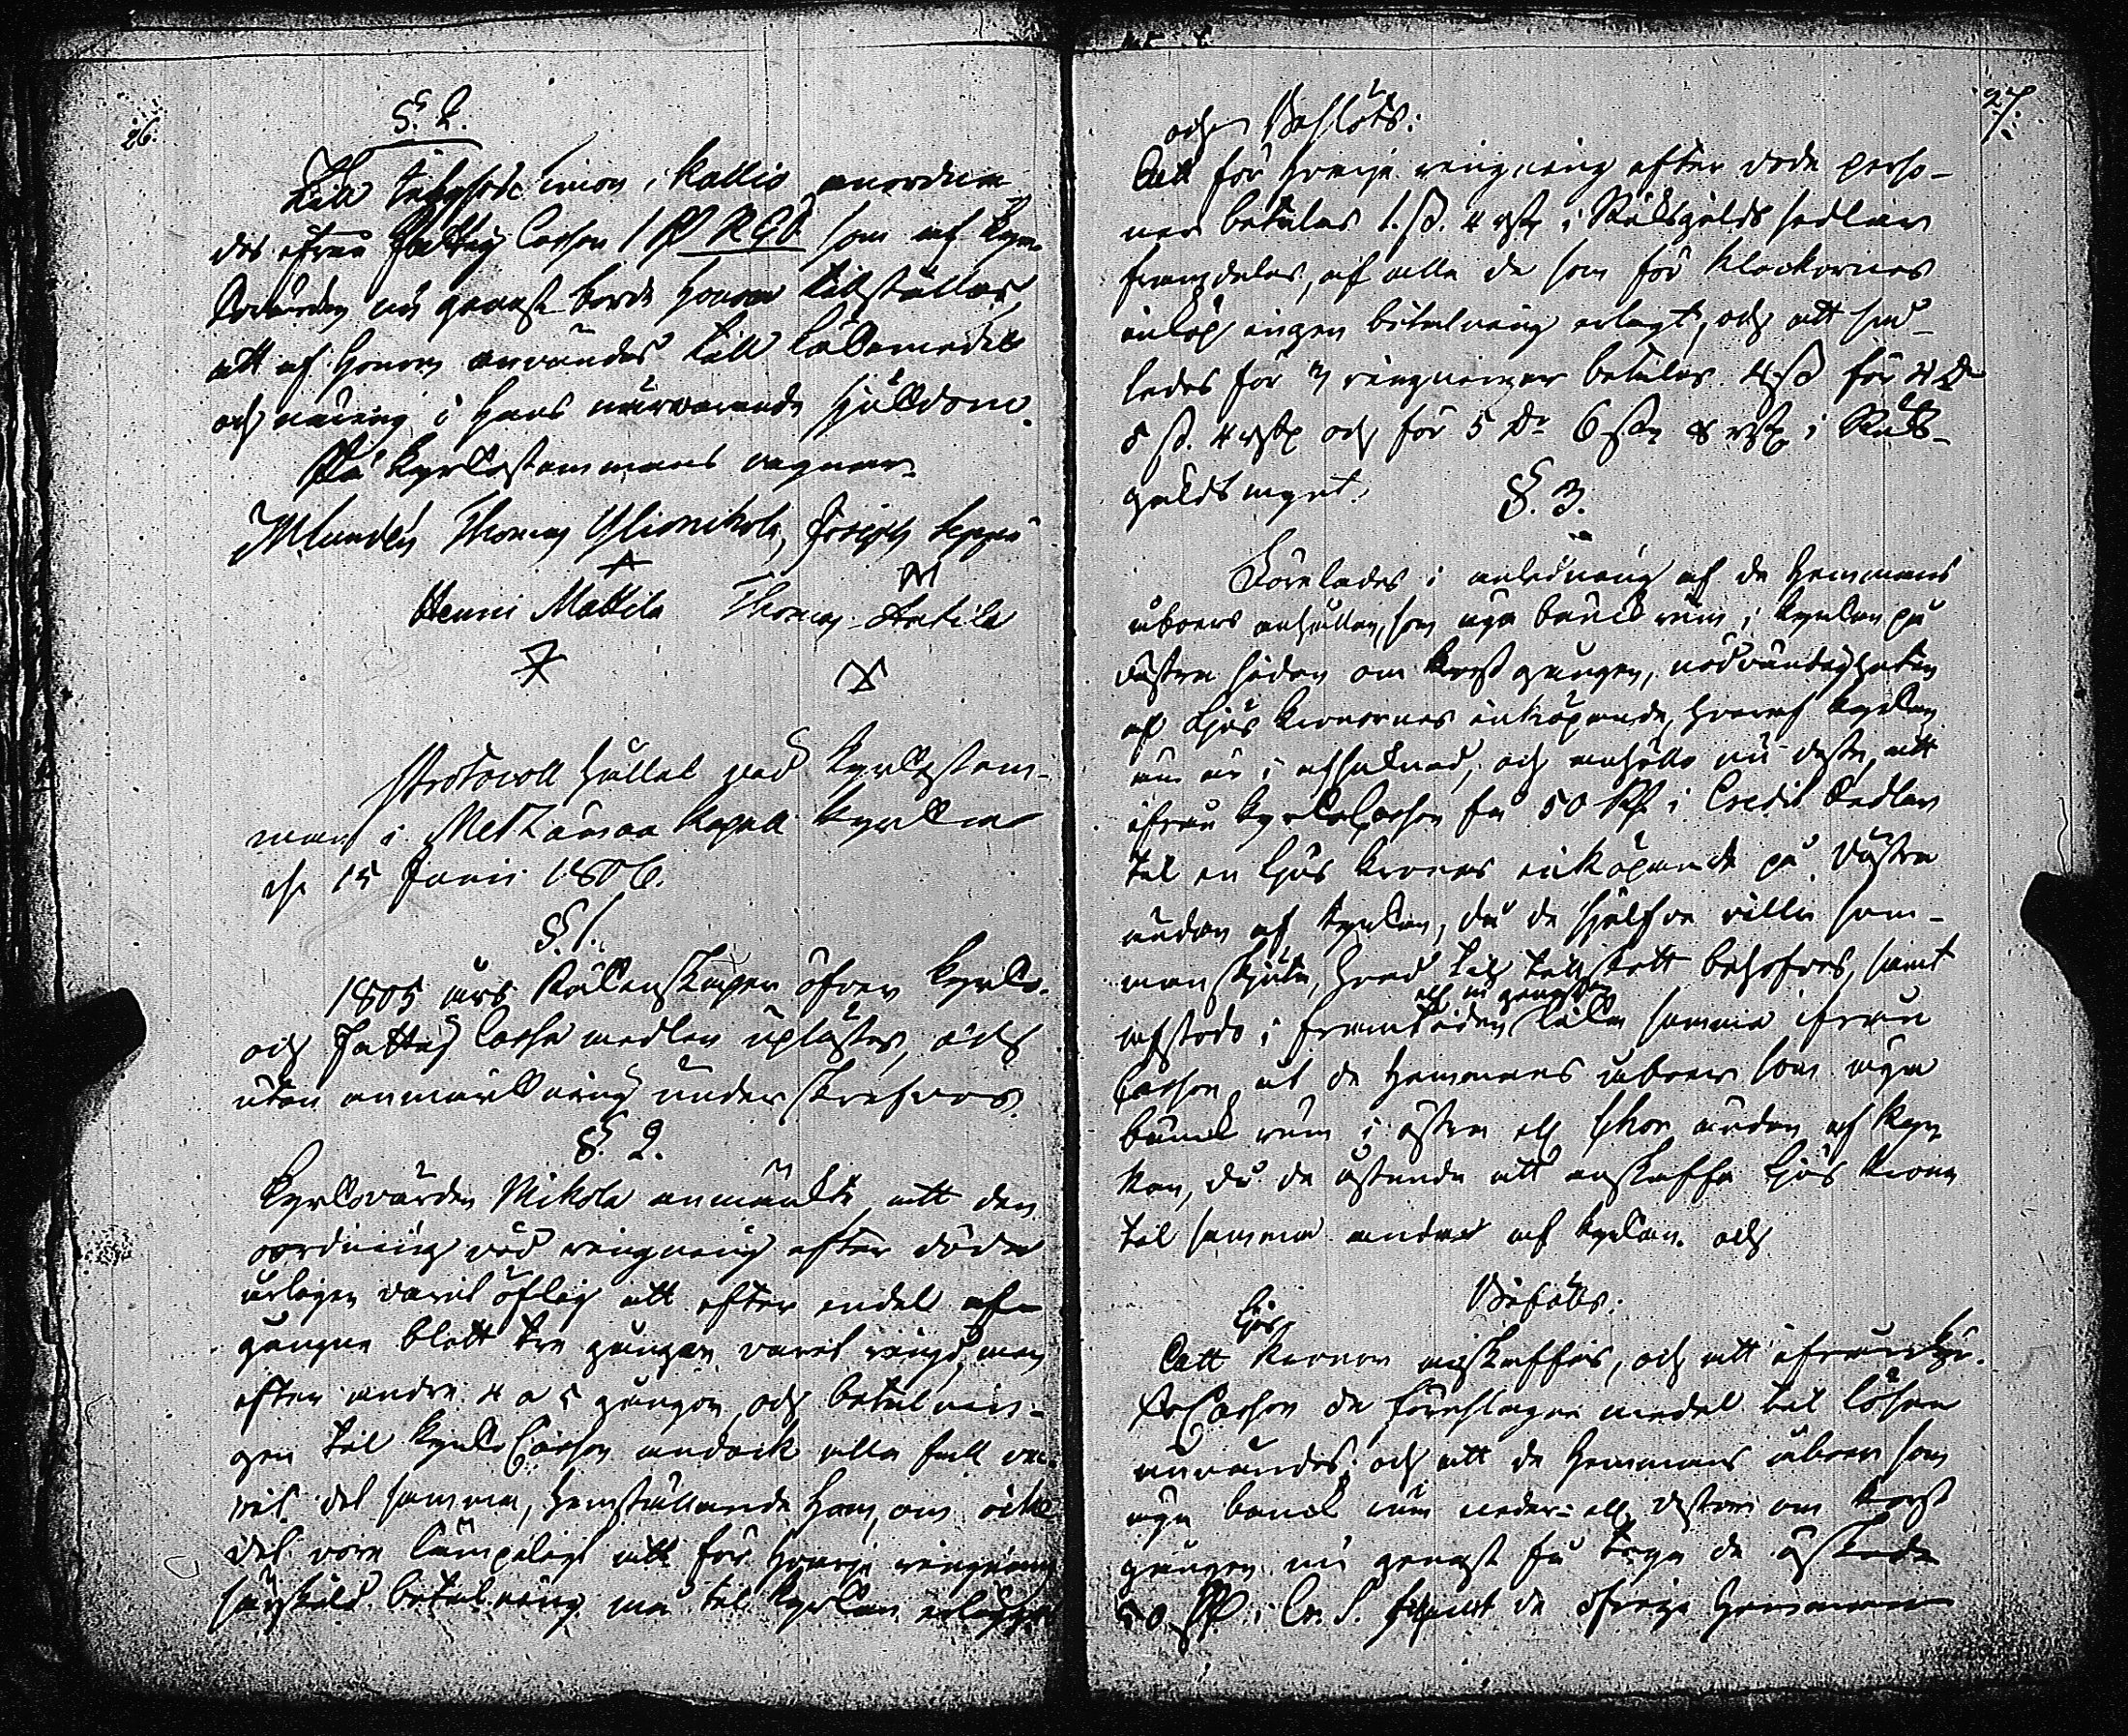 26.
§. 2.
Till Simon Kallio anordna
des ifrån Fattig Cassan 1 Rd RGd. som af Kyrko
värden nu genast borde honom tillställas,
att af honom användas till läkemedel
och näring i hans närvarande sjukdom.
På Kyrkostämmans vägnar.
M Lundén Thomas Ylimikola, Joseph Seppä
Henric Mattila Thomas Anttila
Protocoll hållet vid Kyrkostäm-
man i Kapell Kyrkan
d. 15 Junii 1806.
§ 1.
1805 års Räkenskaper öfver Kyrko-
och Fattig Cassa medlen uplästes, och
utan anmärkning underskrefvos.
§. 2.
Kyrkovärden Mikola anmälte, att den
oordning vid ringning efter döde
varit öflig att efter endel af-
gångne blott tre gånger varit ringd, men
efter andre 4 a 5 gånger, och betalnin-
gen till Kyrko Cassan ändock i alla fall va-
rit det samma, hemställande han, om icke
det vore lämpeligt att för hvarje ringning
särskild betalning må til Kyrkan erlägges
27.
och Beslöts:
Att för hvarje ringning efter döde perso-
ner betalas 1 ß. 4 rst i Riksgälds sedlar
framdeles, af alla de som för Klockornes
inköp ingen betalning erlagt, och att så-
ledes för 3 ringningar betalas 4 ß för 4 Do
5 ß. 4 rst och för 5 Do 6 ß 8 rst i Riks-
gälds mynt.
§. 3.
Förelades i anledning af de Hemmans
åboers anhållan, som äga bänk rum i Kyrkan på
västra sidan om Korsgången, nödvändigheten
af Ljus Kronornes inköpande, hvaraf Kyrkan
nu är i afsaknad, och anhöllo nu desse, att
ifrån Kyrko Cassan få 50 Rd i Credit Sedlar
til en Ljus Kronas inköpande på västra
ändan af Kyrkan, då de sjelfve ville sam-
manskjuta, hvad til behöfves, samt
afstodo i framtiden samma ifrån
Cassan, åt de Hemmans åboer som äga
bänk rum i östra ell Chor ändan af Kyr-
kan, då de åstunda att anskaffa Ljus Krona
til samma ända af Kyrkan. och
Bifölls:
Ljus
Att Kronor anskaffes, och att ifrån Kyr-
ko Cassan de föreslagne medel til lösen
användes: och att de Hemmans åboer som
äga bänk rum neder- ell vestom om Kors
gången nu genast få taga de äskade
50 Rd i Cr. S. de öfrige Hemmans